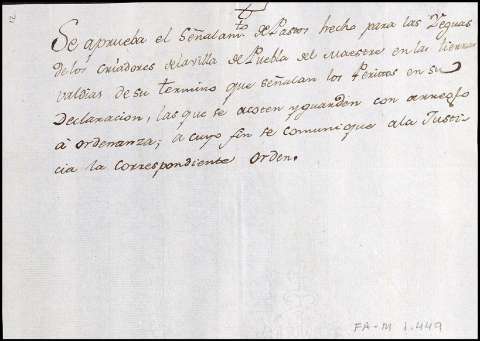 12
Se aprueba el Señalam.to de Pastos hecho para las Yeguas
de los criadores dela villa de Puebla del Maestre en las tierras
valdias de su termino que señalan los Peritos en su
Declaracion, las que se acoten y guarden con arreglo
á ordenanza; á cuyo fin se comunique ala Justi-
cia la correspondiente orden.
FA-M 1.449